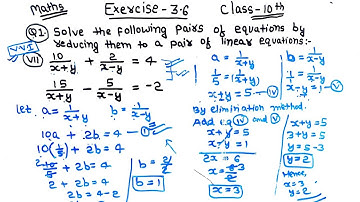 Maths Exercise-3.6 Class-10th
Q1. Solve the following pairs of equations by
reducing them to a pair of linear equations:-
VVI
(VII) 10/(x+y) + 2/(x-y) = 4
15/(x+y) - 5/(x-y) = -2
let a = 1/(x+y) b = 1/(x-y)
10a + 2b = 4
10(1/5) + 2b = 4
2 + 2b = 4
2b = 4-2
b = 2/2
b = 1
a = 1/(x+y)
1/5 = 1/(x+y)
x+y = 5 - (IV)
b = 1/(x-y)
1 = 1/(x-y)
x-y = 1 - (V)
By elimination method.
Add eq (IV) and (V)
x+y = 5
x-y = 1
2x = 6
x = 3
x+y = 5
3+y = 5
y = 5-3
y = 2
Hence,
x = 3
y = 2